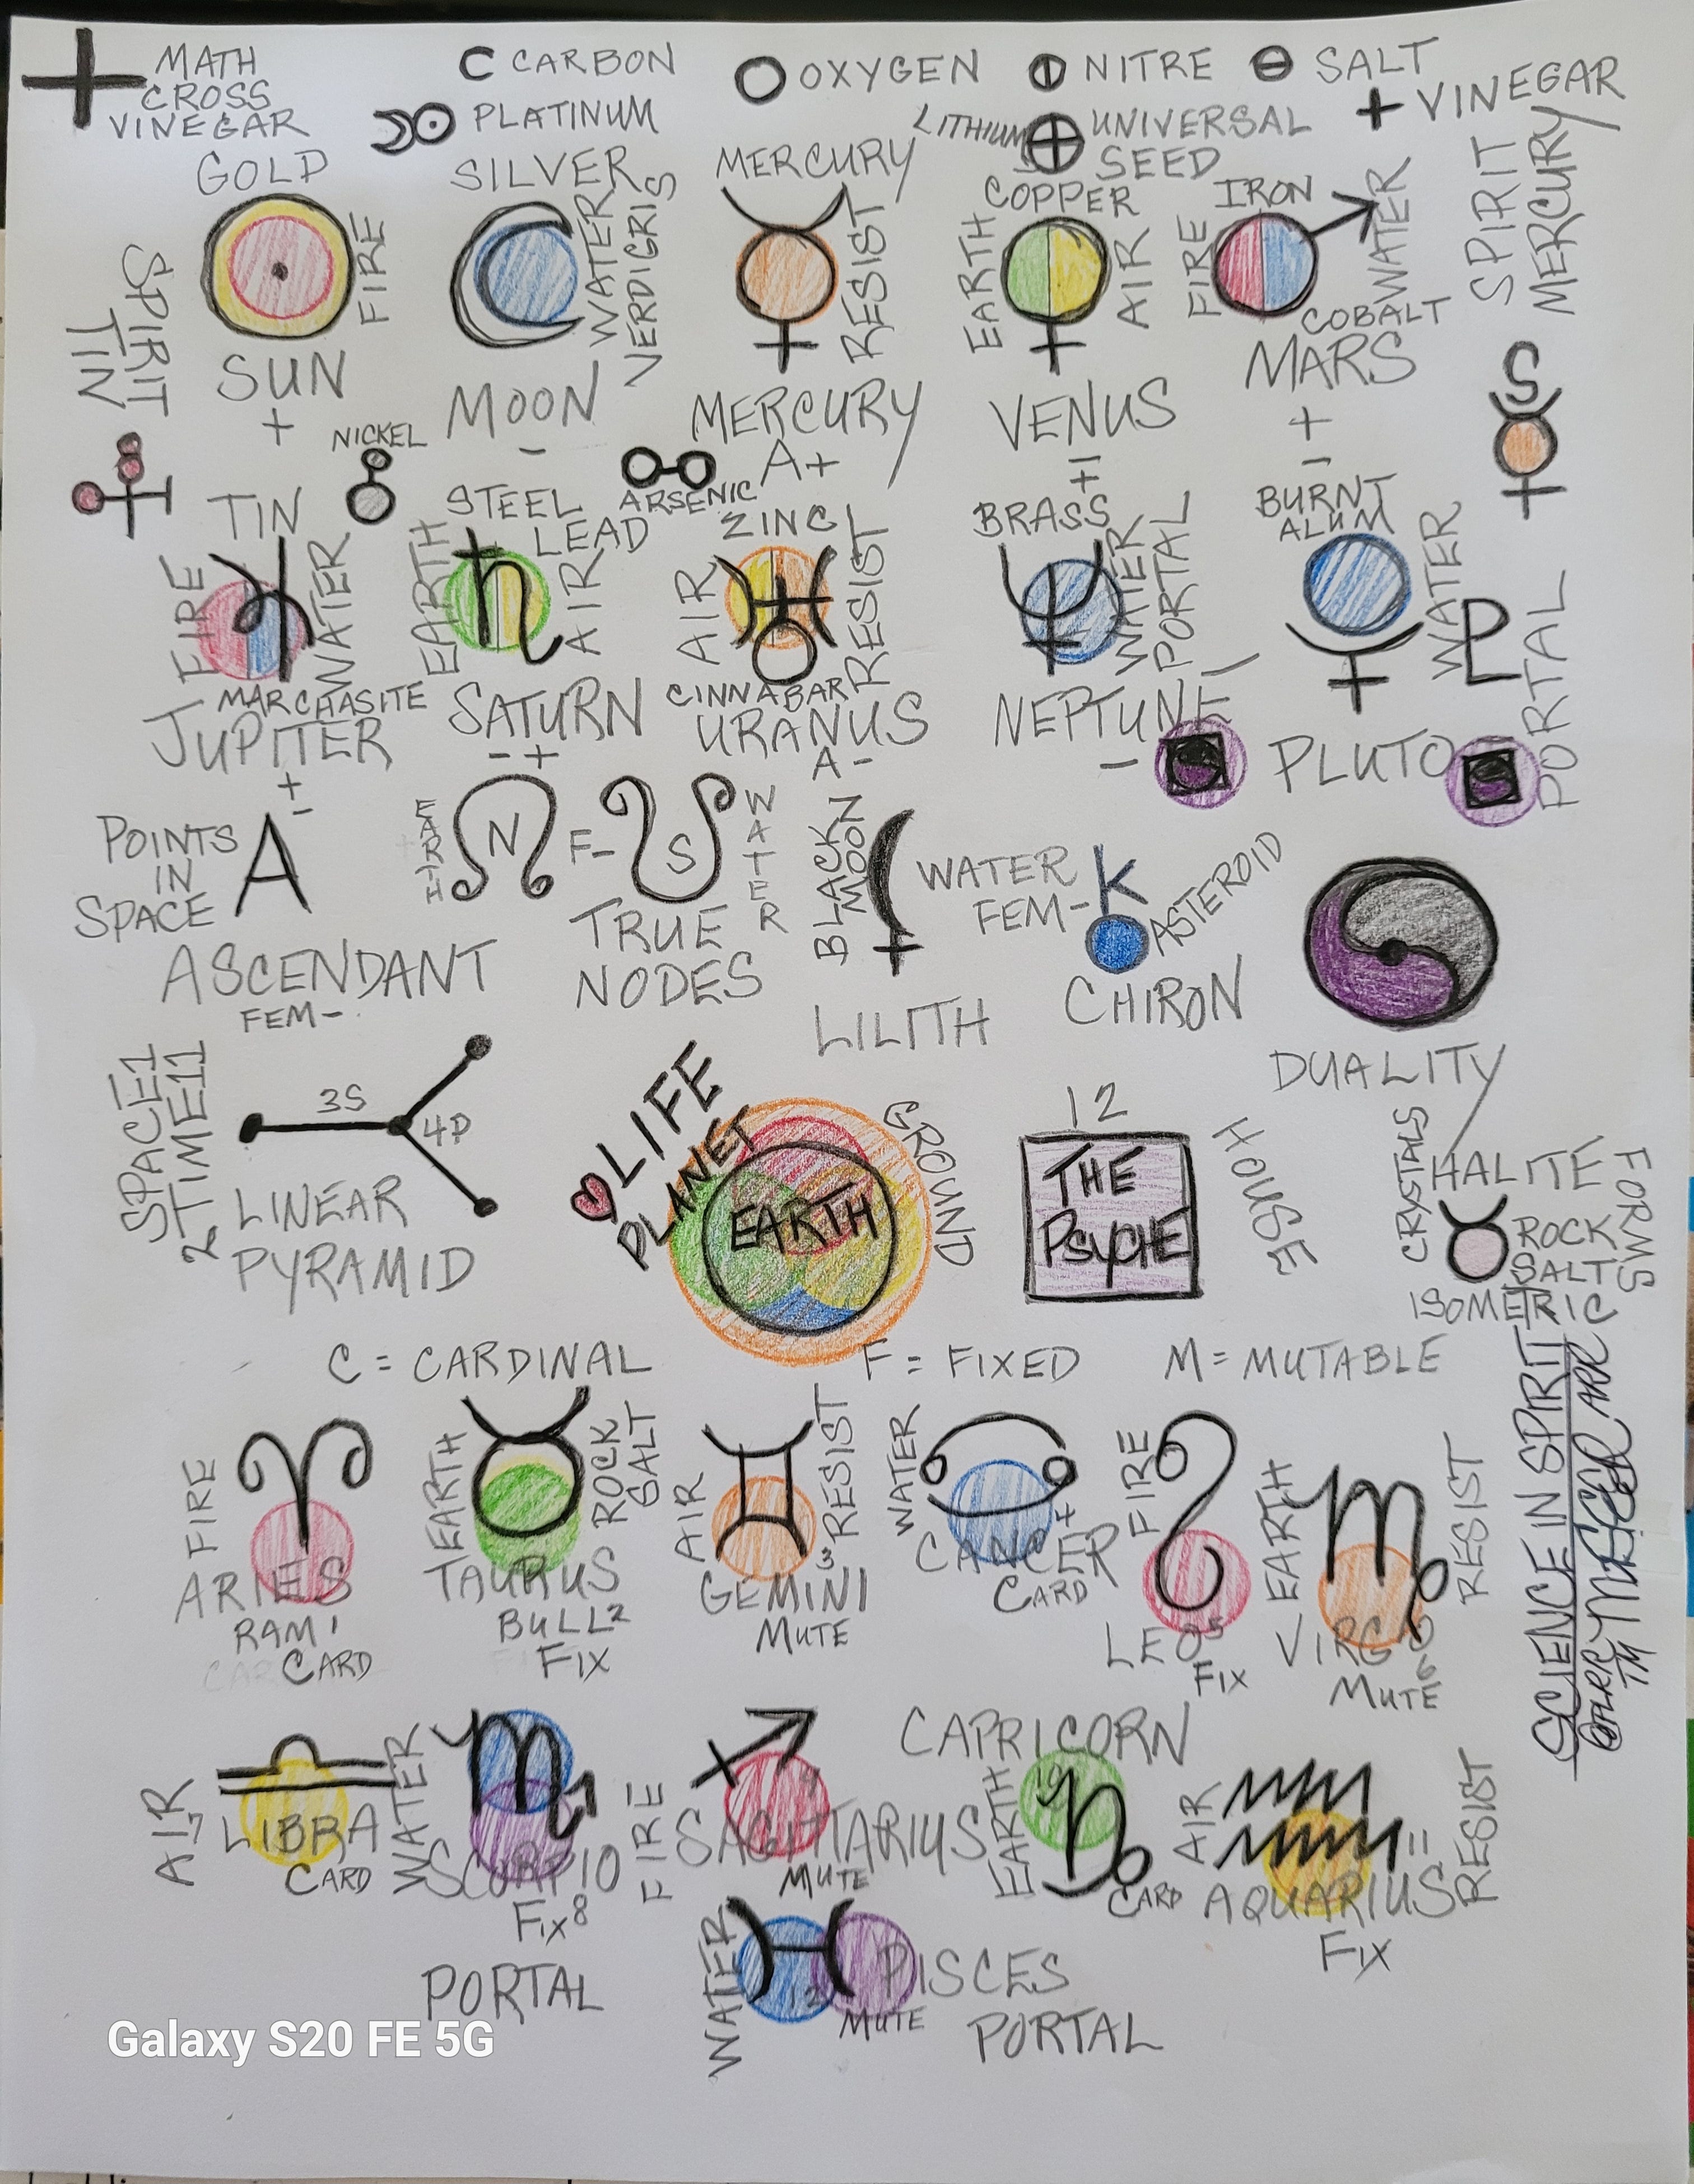 MATH
CROSS
VINEGAR
C CARBON
OXYGEN
NITRE
SALT
VINEGAR
PLATINUM
LITHIUM
UNIVERSAL
SEED
GOLD
FIRE
SUN
+
SILVER
WATER
VERDIGRIS
MOON
-
MERCURY
RESIST
MERCURY
A+
COPPER
EARTH
AIR
VENUS
IRON
FIRE
WATER
COBALT
MARS
SPIRIT
MERCURY
S
SPIRIT
TIN
NICKEL
ARSENIC
TIN
FIRE
WATER
MARCHASITE
JUPITER
STEEL
LEAD
EARTH
AIR
SATURN
- +
ZINC
AIR
RESIST
CINNABAR
URANUS
A-
BRASS
WATER
PORTAL
NEPTUNE
-
BURNT
ALUM
WATER
PORTAL
PLUTO
POINTS
IN
SPACE
A
ASCENDANT
FEM-
EARTH
N
F-
S
WATER
TRUE
NODES
BLACK
MOON
LILITH
WATER
FEM-
K
ASTEROID
CHIRON
DUALITY
SPACE1
2TIME11
3S
4D
LINEAR
PYRAMID
LIFE
PLANET
GROUND
EARTH
12
THE
PSYCHE
HOUSE
CRYSTALS
HALITE
ROCK
SALT
FORMS
ISOMETRIC
C = CARDINAL
F = FIXED
M = MUTABLE
FIRE
ARIES
RAM 1
CARD
EARTH
ROCK
SALT
TAURUS
BULL 2
FIX
AIR
RESIST
3
GEMINI
MUTE
WATER
4
CANCER
CARD
FIRE
LEO 5
FIX
EARTH
RESIST
VIRGO
6
MUTE
SCIENCE IN SPIRIT
TM
AIR
7
LIBRA
CARD
WATER
SCORPIO
FIX 8
PORTAL
FIRE
9
SAGITTARIUS
MUTE
CAPRICORN
EARTH
10
CARD
AIR
11
RESIST
AQUARIUS
FIX
WATER
12
PISCES
MUTE
PORTAL
Galaxy S20 FE 5G